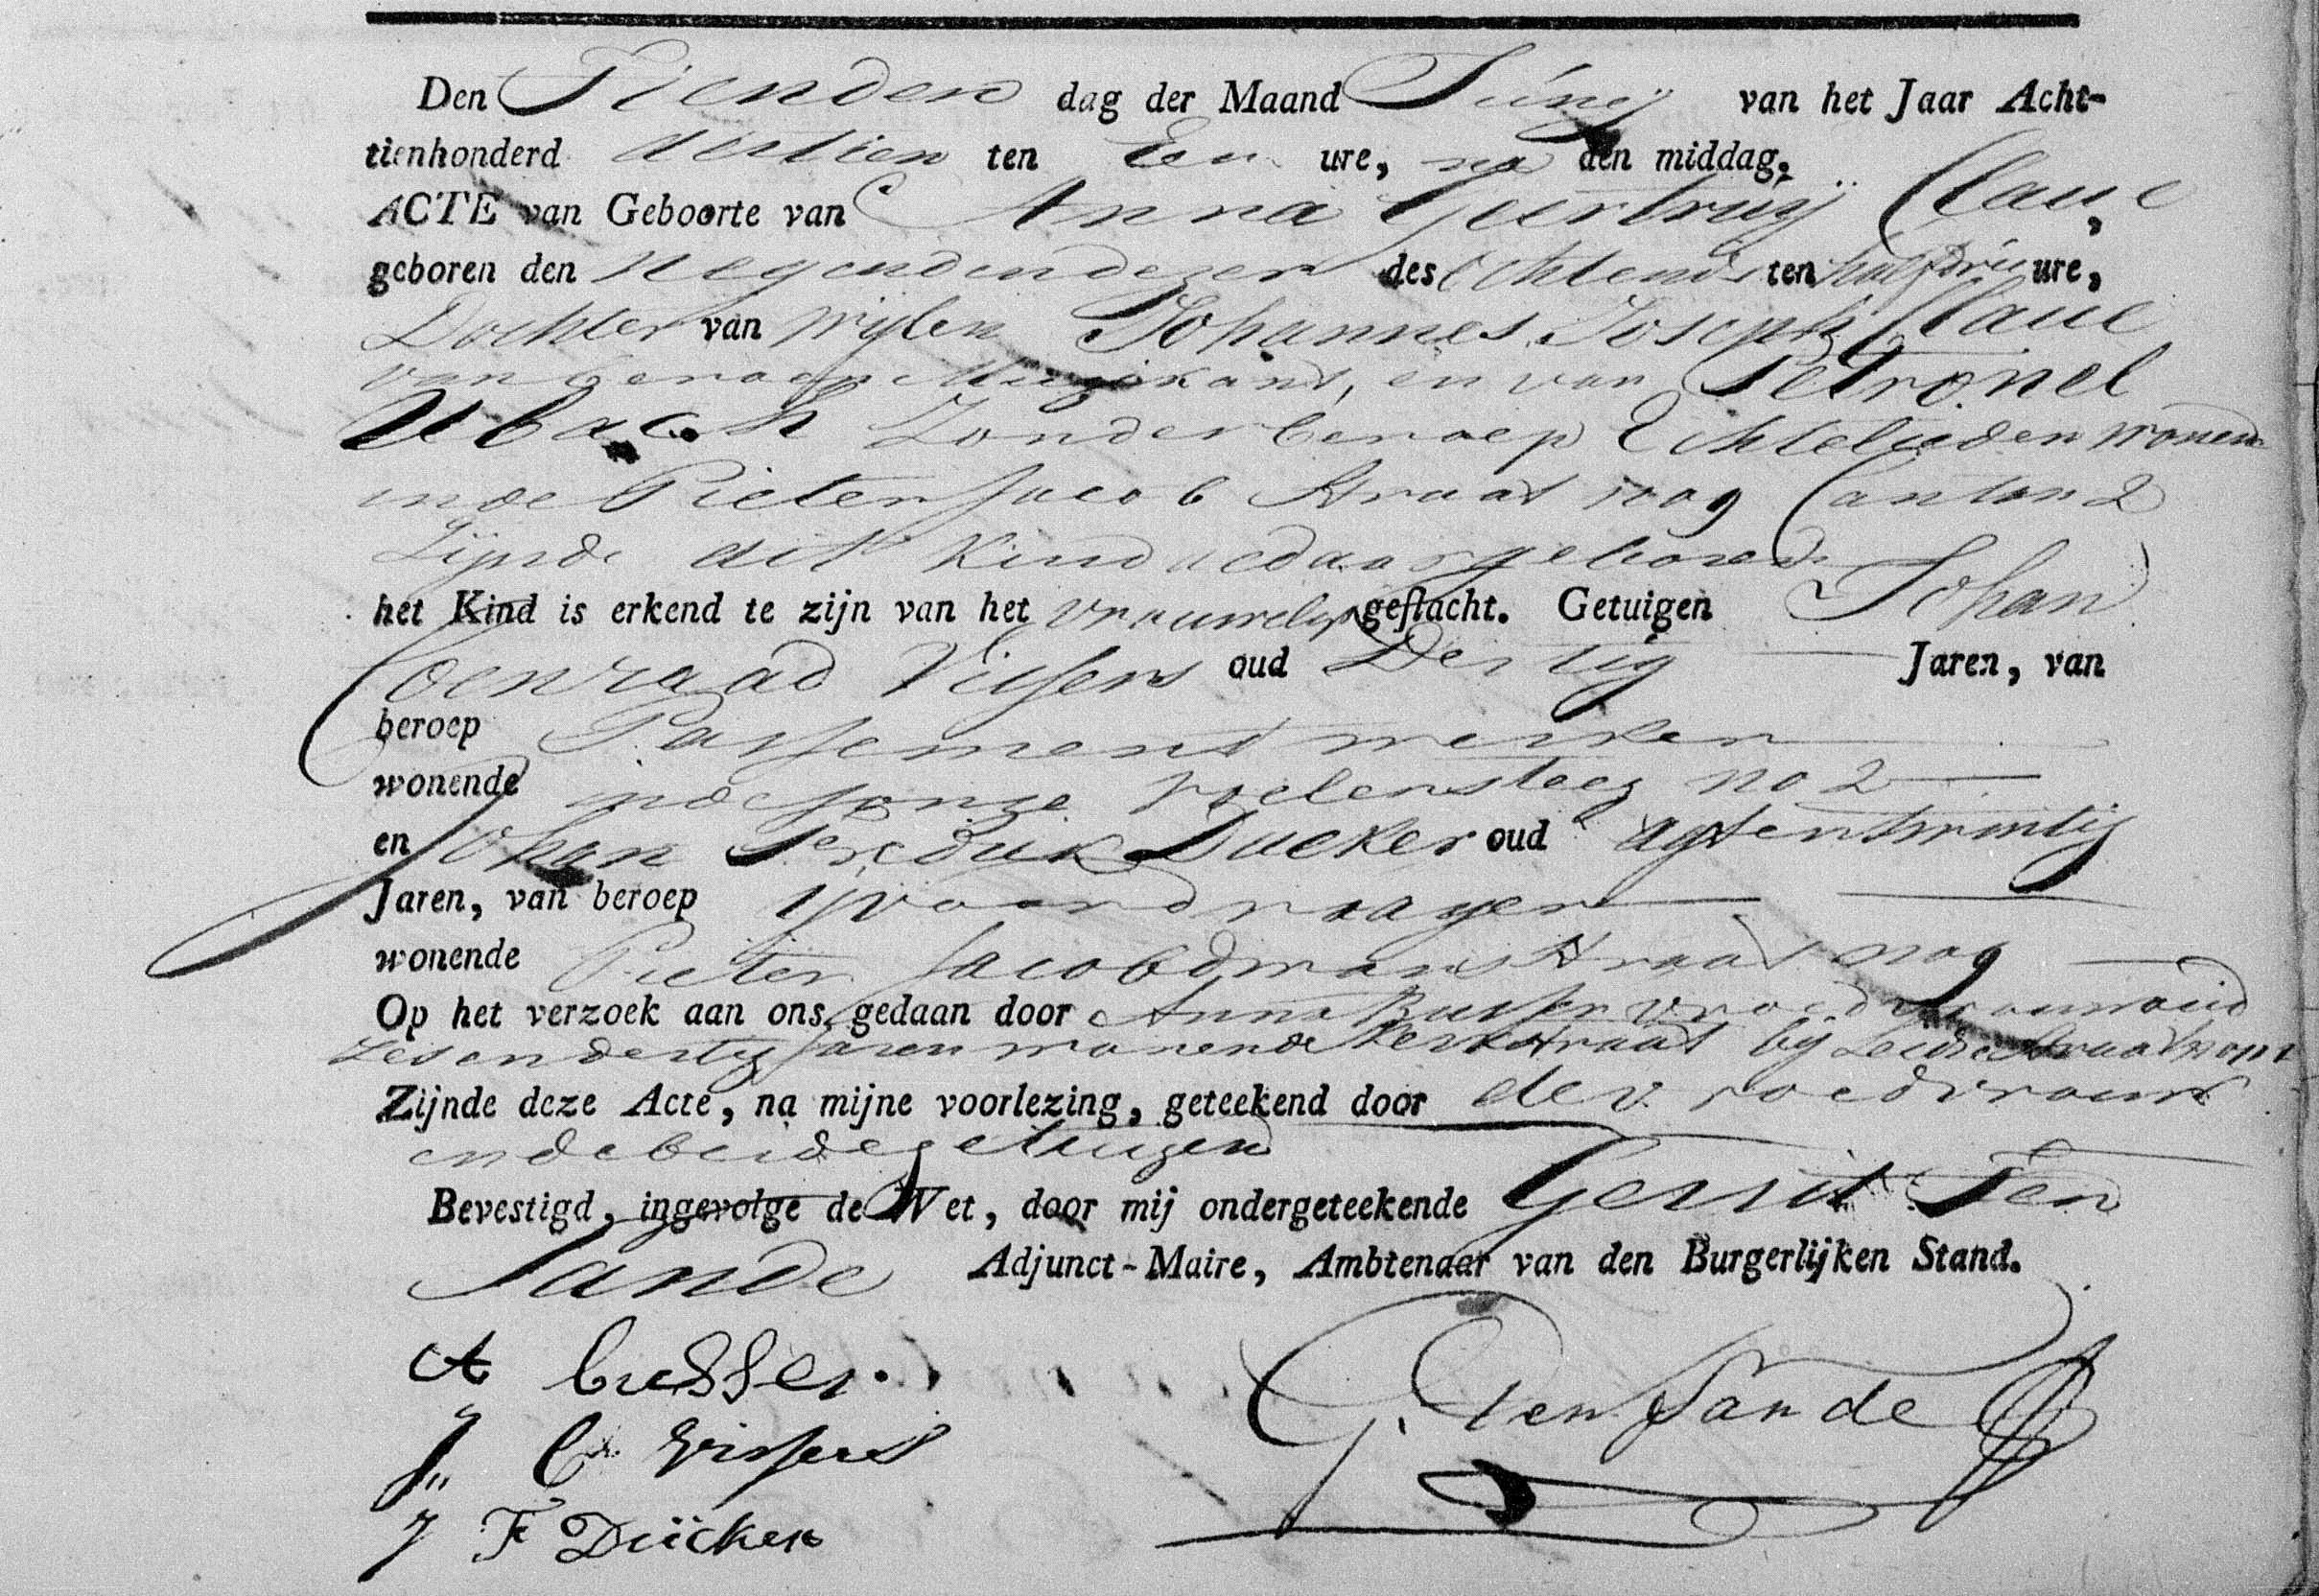 Den Tienden dag der Maand Junij van het Jaar Acht-
tienhonderd dertien ten Een ure, na den middag,
ACTE van Geboorte van Anna Geertruij Claue,
geboren den negenden dezer des Ochtends ten half drie ure,
Dochter van wijlen Johannes Joseph Claue
van beroep Muzikant, en van Petronel
Ubach Zonder beroep Echtelieden wonend
in de Pieter Jacob Straat no 9 Canton 2
Zijnde dit Kind aldaar geboren
het Kind is erkend te zijn van het vrouwelijk geslacht. Getuigen Johan
Coenraad Vissers oud Dertig Jaren, van
beroep Passement werker
wonende in de lange steeg no 2
en Johan Fredrik Ducker oud agtentwintig
Jaren, van beroep
wonende Pieter Jacobdwars straat no 9
Op het verzoek aan ons, gedaan door Anna Busser vroedvrouw oud
zesendertig Jaren wonende Kerkstraat bij Leidsestraat
Zijnde deze Acte, na mijne voorlezing, geteekend door de vroedvrouw
en de beide getuigen
Bevestigd, ingevolge de Wet, door mij ondergeteekende Gerrit Ten
Sande Adjunct-Maire, Ambtenaar van den Burgerlijken Stand.
A busser.
J C Vissers
J F Dücker
G. Ten Sande